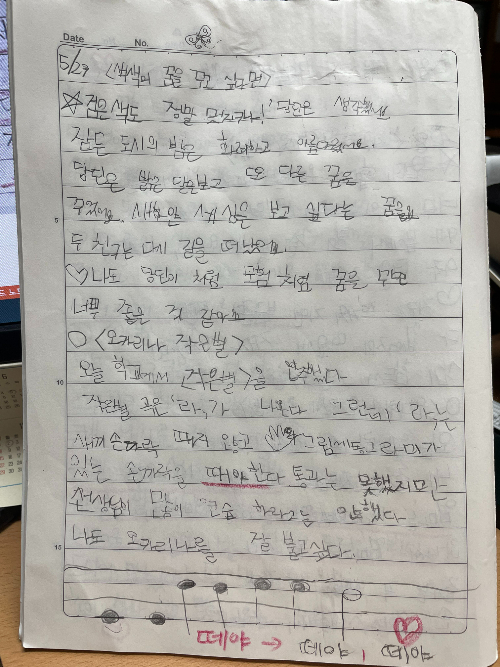 Date No.
5/29 <색색의 꿈을 꾸고 싶으면>
☆검은색도 정말 멋지구나!' 당단은 생각했어요
짙은 도시의 밤은 화려하고 아름다웠어요.
당단은 밝은 달을보고 또 다른 꿈을
꾸었어요. 새하얀 세상을 보고 싶다는 꿈을요
두 친구는 다시 길을 떠났어요
♡나도 당단이 처럼 모험처럼 꿈을 꾸면
너무 좋을 것 같아요
○<오카리나 작은별>
오늘 학교에서 <작은별>을 연주했다
작은별 곡은 '라,가 나온다 그런데 '라,는
새끼손가락 떼지 않고 그림에 동그라미가
있는 손가락을 떼야한다 통과는 못했지만
선생님이 많이 연습 하라고는 안했다
나도 오카리나를 잘 불고싶다.
떼야 → 떼야, 떼야
5
10
15